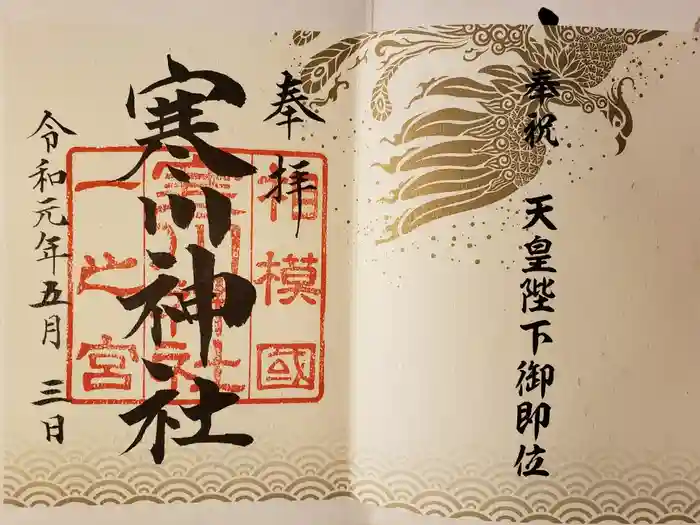 奉祝 天皇陛下御即位
奉拝
寒川神社
相模國
寒川神社
一之宮
令和元年五月 三日